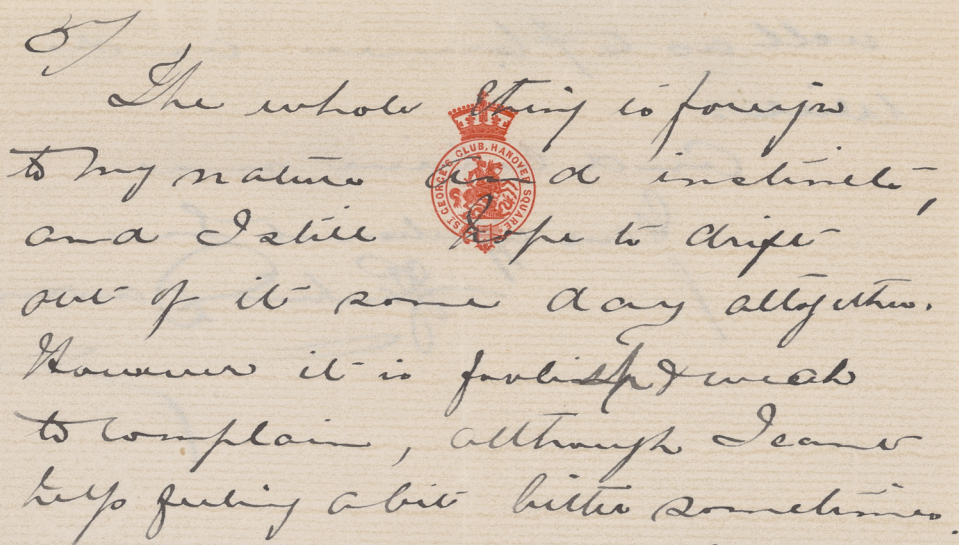 5/
The whole thing is foreign
to my nature and instincts,
and I still hope to drift
out of it some day altogether.
However it is foolish & weak
to complain, although I cant
help feeling a bit bitter sometimes.
ST GEORGE'S CLUB, HANOVER SQUARE